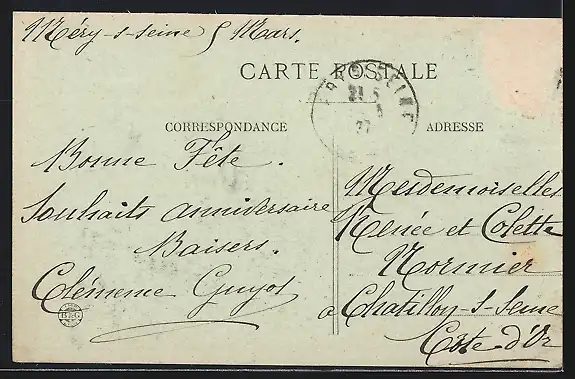 Méry-s-Seine 5 Mars.
CARTE POSTALE
CORRESPONDANCE
Bonne Fête.
Souhaits anniversaire
Baisers.
Clémence Guyot
B&G
ADRESSE
Mesdemoiselles
Renée et Colette
Normier
a Chatillon-s-Seine
Côte-d'Or